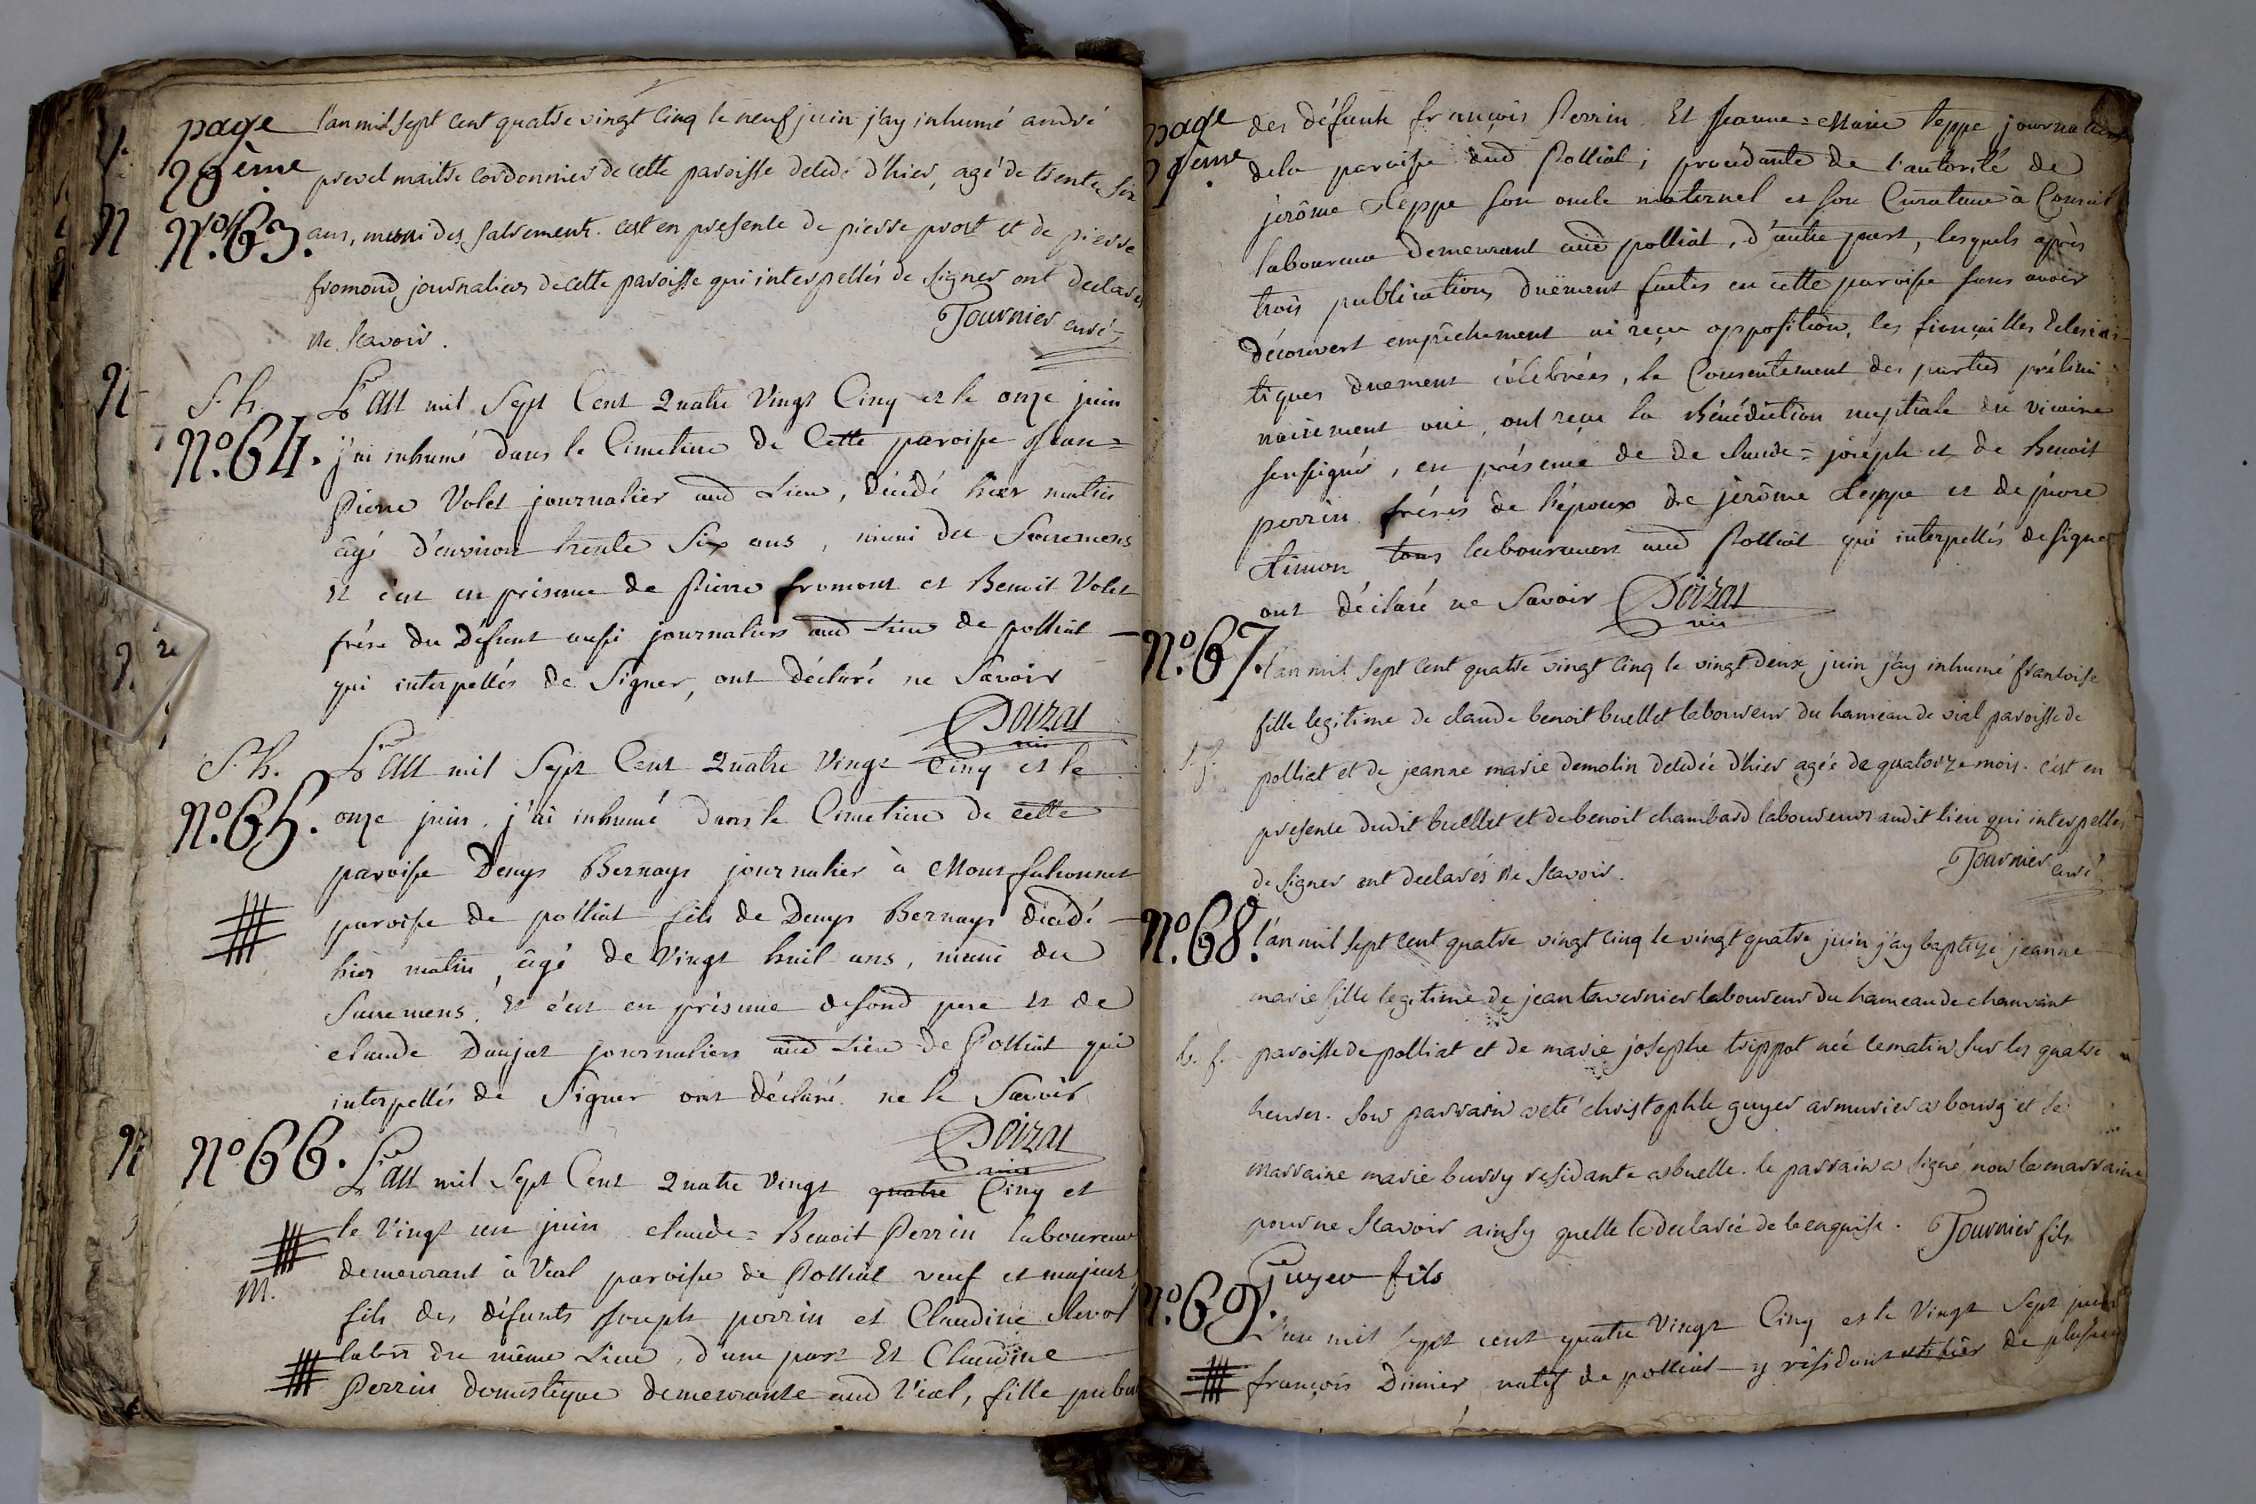 page
28ème
No. 63.
l'an mil sept cent quatre vingt cinq le neuf juin j'ay inhumé andré
prevel maitre cordonnier de cette paroisse decedé d'hier, agé de trente six
ans, muni des sacrements. c'est en presence de pierre prost et de pierre
fromond journaliers de cette paroisse qui interpellés de signer ont declarés
ne scavoir.
Tournier curé
S. h.
No. 64.
L'an mil Sept Cent Quatre Vingt Cinq et le onze juin
j'ai inhumé dans le Cimetiere de Cette paroisse Jean=
Pierre Volet journalier aud Lieu, décédé hier matin
âgé d'environ trente Six ans, muni des Sacremens
Et c'est en présence de Pierre fromont et Benoit Volet
frère du Défunt aussi journaliers aud Lieu de polliat
qui interpellés de Signer, ont déclaré ne Savoir
Doizat
vic
S. h.
No. 65.
L'an mil Sept Cent Quatre Vingt Cinq et le
onze juin, j'ai inhumé dans le Cimetiere de cette
paroisse Denys Bernays journalier à Montfalconnet
paroisse de polliat fils de Denys Bernays décédé
hier matin, âgé de Vingt huit ans, muni des
Sacremens, Et c'est en présence desond pere Et de
claude Daujat journaliers aud Lieu de Polliat qui
interpellés de Signer ont déclaré ne le Savoir
Doizat
vic
No 66.
L'an mil Sept Cent Quatre Vingt quatre Cinq et
le Vingt un juin claude=Benoit Perrin laboureur
demeurant à Vial paroisse de Polliat veuf et majeur
M.
fils des défunts Joseph perrin et Claudine
labrs du même Lieu, d'une part Et Claudine
Perrin domestique demeurante aud Vial, fille
page
des défunts françois Perrin Et Jeanne=Marie Teppe journaliers
dela paroisse dud Polliat; procédante de l'autorité de
jerôme Teppe son oncle maternel et son Curateur à Conseil
laboureur demeurant aud polliat, d'autre part, lesquels après
trois publications duëment faites en cette paroisse sans avoir
découvert empêchement ni reçu opposition, les fiançailles Eclesias-
tiques duement célébrées, le Consentement des parties prélimi-
nairement oui, ont reçu la Bénédiction nuptiale du vicaire
soussigné, en présence de de claude=joseph et de Benoit
perrin frères de l'époux de jérôme Teppe et de pierre
tous laboureurs aud Polliat qui interpellés de signer
ont déclaré ne Savoir Doizat
vic
No. 67.
l'an mil sept cent quatre vingt cinq le vingt deux juin j'ay inhumé francoise
fille legitime de claude benoit buellet laboureur du hameau de vial paroisse de
polliat et de jeanne marie demolin decedée d'hier agée de quatorze mois. c'est en
presence dudit buellet et de benoit chambard laboureurs audit lieu qui interpellés
de signer ont declarés ne scavoir.
Tournier curé
No. 68.
l'an mil sept cent quatre vingt cinq le vingt quatre juin j'ay baptizé jeanne
marie fille legitime de jean tavernier laboureur du hameau de chanvant
b. f.
paroisse de polliat et de marie josephe trippot née lematin sur les quatre
heures. son parrain a eté christophle guyer armurier a bourg et sa
marraine marie burry residante a buelle. le parrain a signé, non la marraine
pour ne scavoir ainsy quelle le declarée de ce enquise. Tournier fils
Guyer fils
No. 69.
L'an mil sept cent quatre Vingt Cinq et le Vingt Sept juin
françois Dimier natif de polliat y résidant de plusieurs